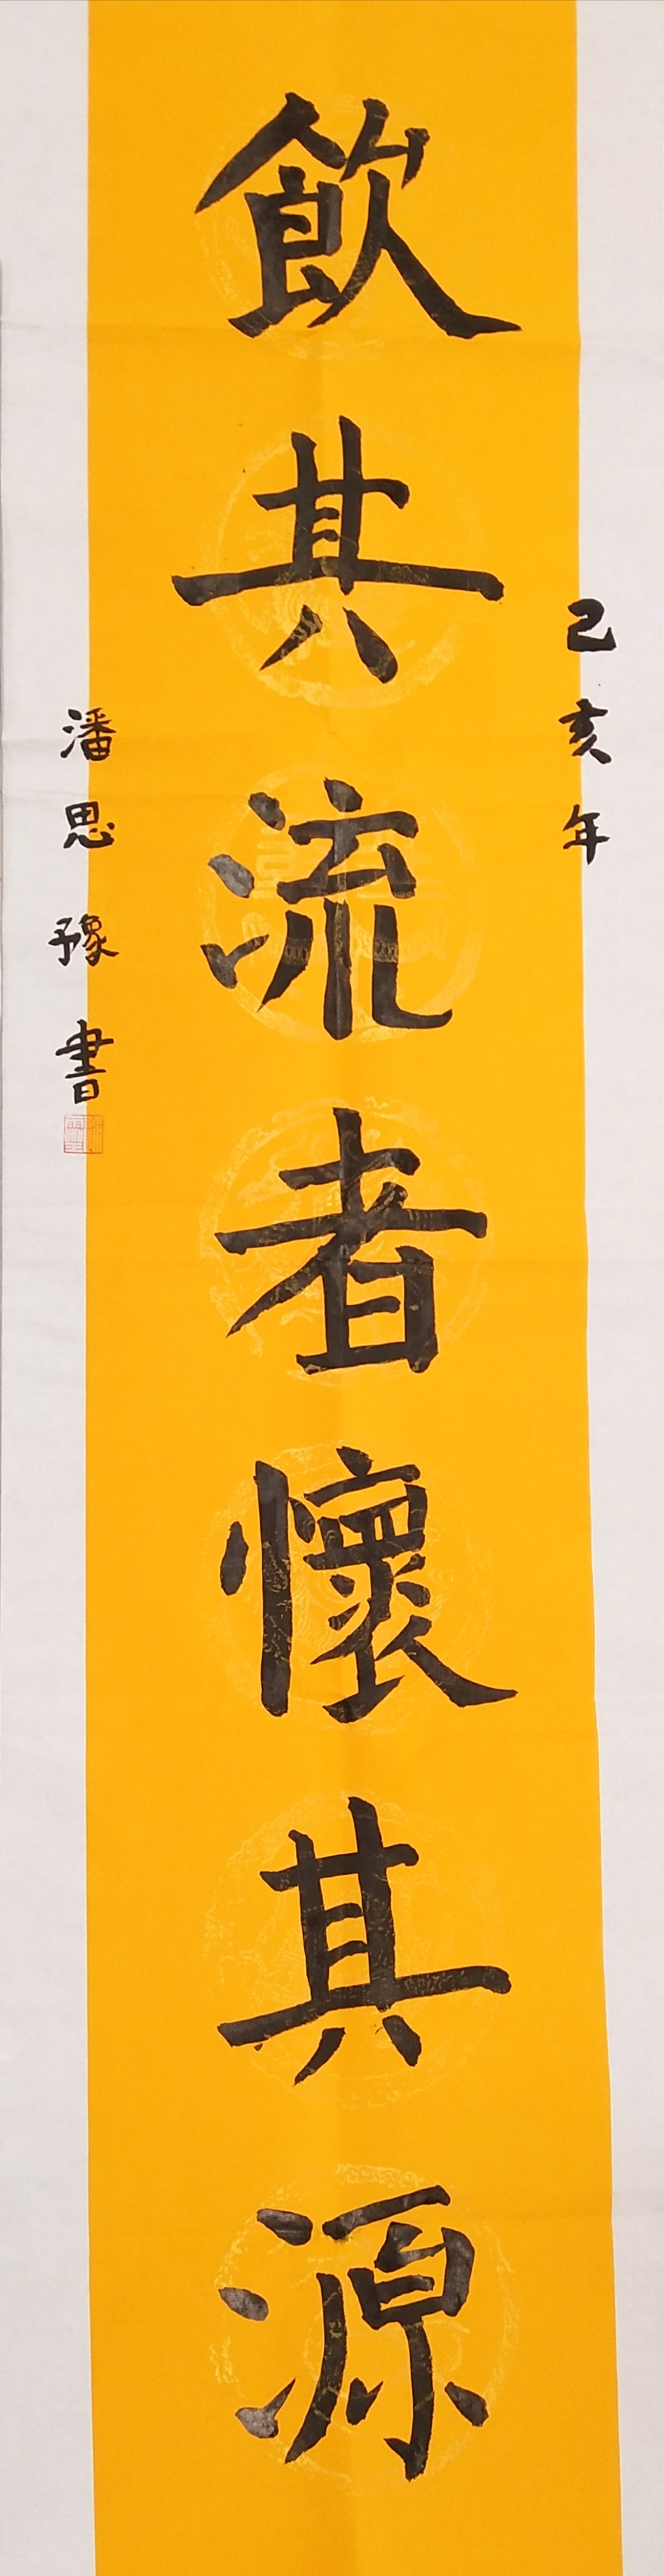 己亥年
飲其流者懷其源
潘思豫書